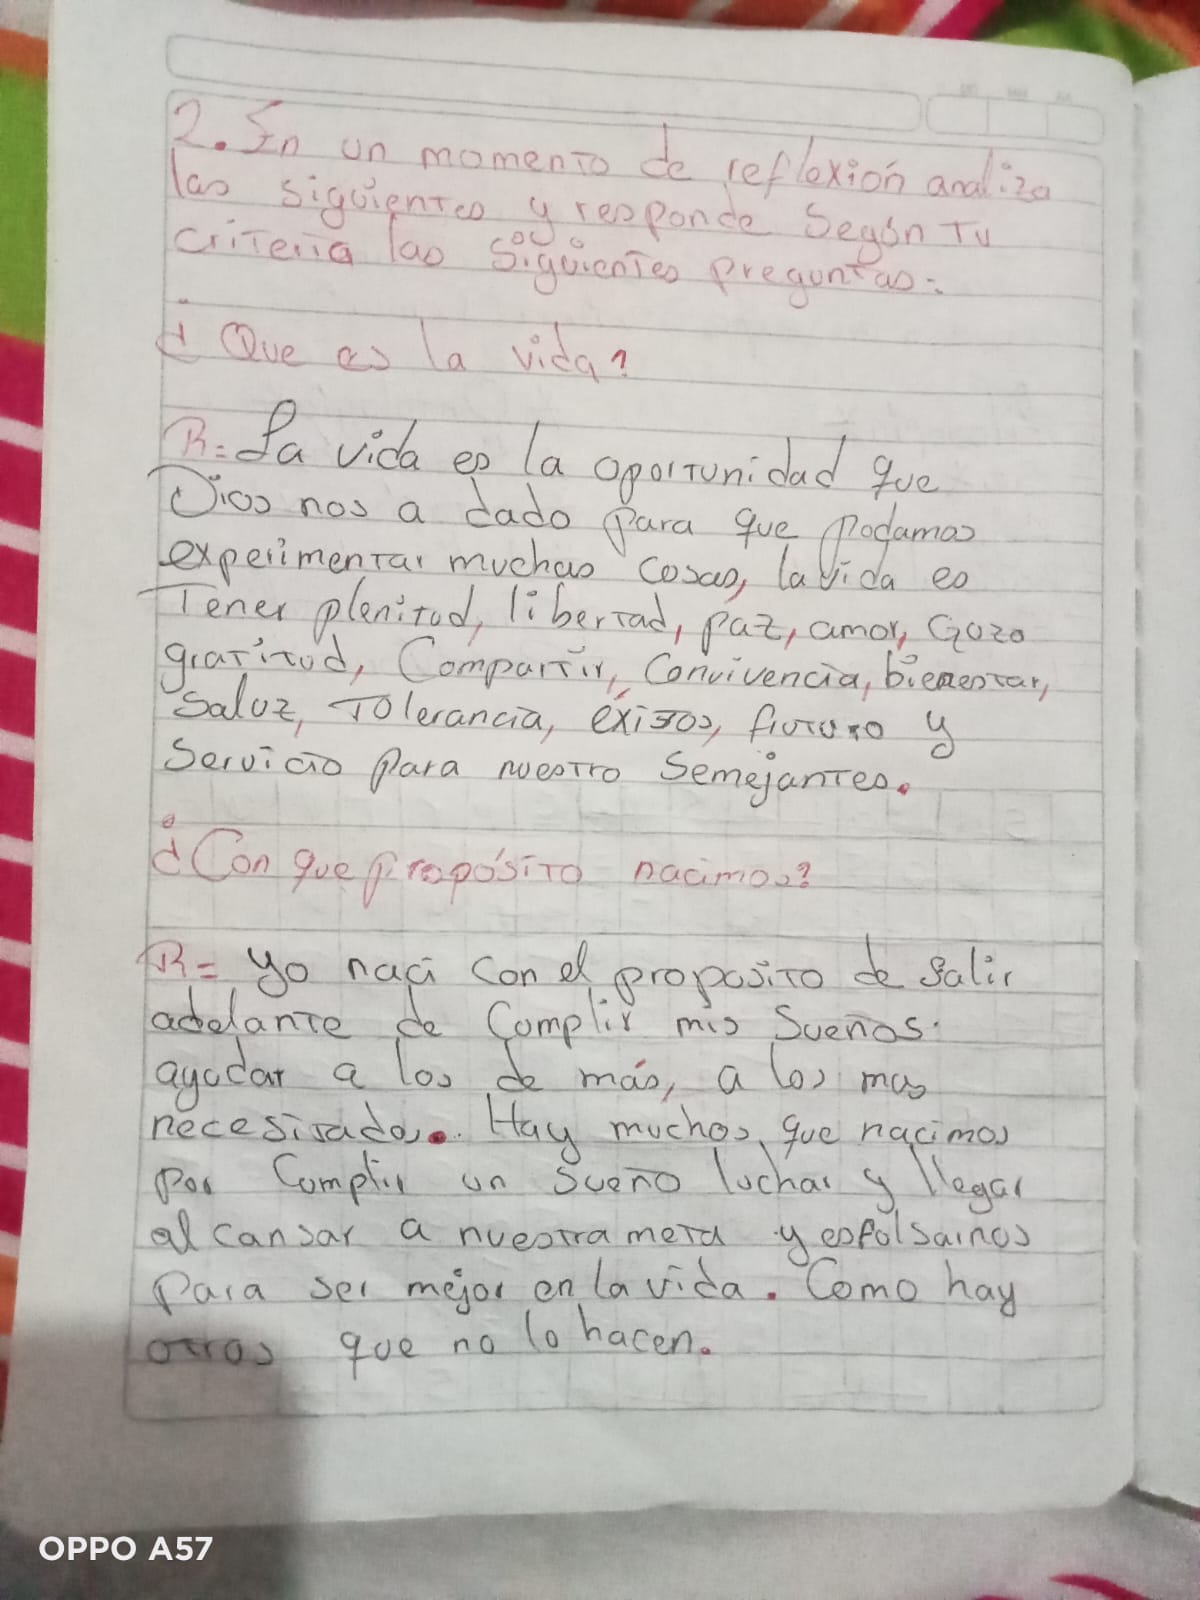 2. En un momento de reflexión analiza
las siguientes y responde Según Tu
criteria las siguientes preguntas:
¿Que es la vida?
R= La vida es la oportunidad que
Dios nos a dado para que podamos
experimentar muchas cosas, la vida es
Tener plenitud, libertad, paz, amor, Gozo
gratitud, Compartir, Convivencia, bienestar,
Saluz, Tolerancia, éxitos, futuro y
Servicio para nuestro Semejantes.
¿Con que propósito nacimos?
R= Yo naci Con el proposito de Salir
adelante de Complir mis Sueños.
ayudar a los de más, a los mas
necesitados. Hay muchos que nacimos
por Complir un Sueño luchar y llegar
alcansar a nuestra meta y esfolsarnos
para ser mejor en la vida. Como hay
otros que no lo hacen.
OPPO A57